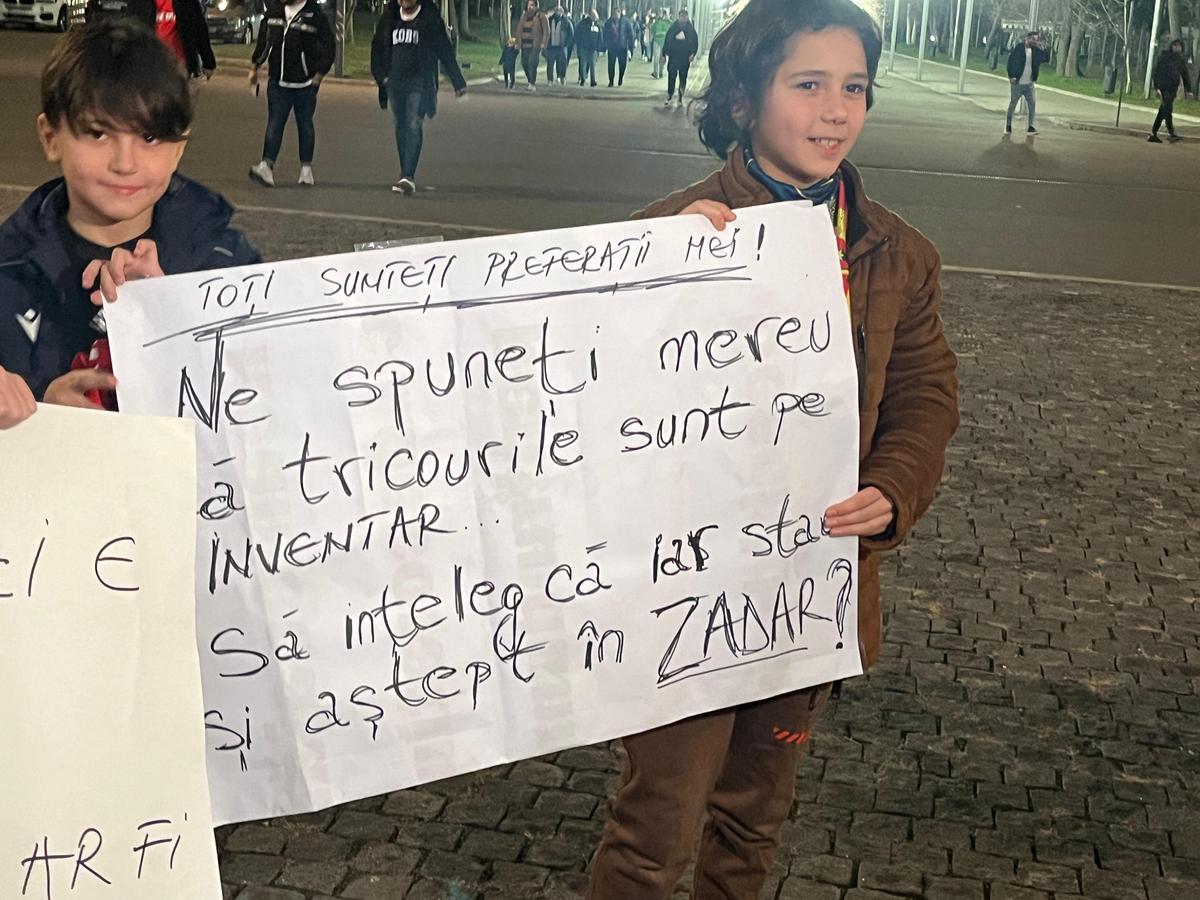 TOȚI SUNTEȚI PREFERAȚII MEI!
Ne spuneți mereu
ă tricourile sunt pe
INVENTAR...
Să ințeleg că iar stau
și aștept în ZADAR?
E
AR FI